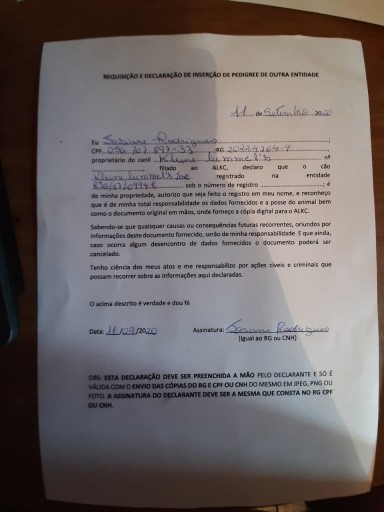 REQUISIÇÃO E DECLARAÇÃO DE INSERÇÃO DE PEDIGREE DE OUTRA ENTIDADE
11 de Setembro 2020
Eu Rodrigues
CPF
proprietário do canil nº
filiado ao ALKC, declaro que o cão
registrado na entidade
sob o número de registro ; é
de minha propriedade, autorizo que seja feito o registro em meu nome, e reconheço
que é de minha total responsabilidade os dados fornecidos e a posse do animal bem
como o documento original em mãos, onde forneço a cópia digital para o ALKC.
Sabendo-se que quaisquer causas ou consequências futuras recorrentes, oriundos por
informações deste documento fornecido, serão de minha responsabilidade. E que ainda,
caso ocorra algum desencontro de dados fornecidos o documento poderá ser
cancelado.
Tenho ciência dos meus atos e me responsabilizo por ações cíveis e criminais que
possam recorrer sobre as informações aqui declaradas.
O acima descrito é verdade e dou fé
Data: 11/09/2020 Assinatura: Rodrigues
(Igual ao RG ou CNH)
OBS: ESTA DECLARAÇÃO DEVE SER PREENCHIDA A MÃO PELO DECLARANTE E SÓ É
VÁLIDA COM O ENVIO DAS CÓPIAS DO RG E CPF OU CNH DO MESMO EM JPEG, PNG OU
FOTO. A ASSINATURA DO DECLARANTE DEVE SER A MESMA QUE CONSTA NO RG CPF
OU CNH.